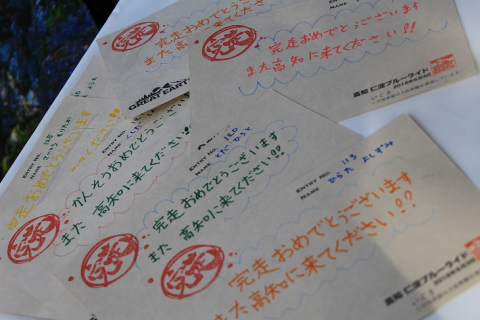 完走おめでとうございます
また高知に来てくださ
完走
GREAT EART
完走おめでとうございます
また高知に来てください!!
完走
NAME
高知 仁淀ブルーライド
ENTRY No.
NAME
完走おめでとうございます
ENTRY No.
NAME
かんそうおめでとうございます
また 高知に来てください!!
完走
ENTRY No. 120
NAME
完走おめでとうございます
また 高知に来てください!!
完走
ENTRY No. 113
NAME ひらた よしずみ
完走おめでとうございます
また高知に来てください!!
完走
高知 仁淀ブルーライド